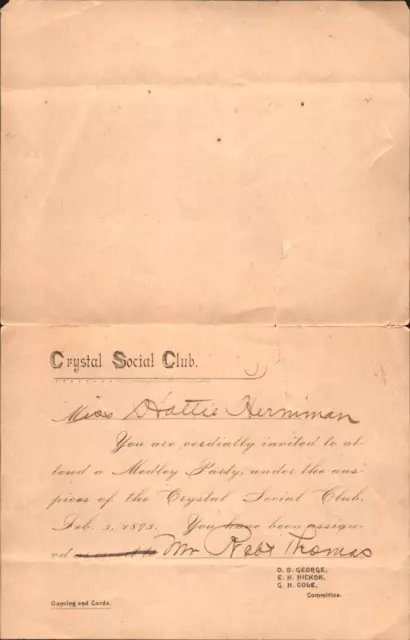 Crystal Social Club.
Miss Hattie Herniman
You are cordially invited to at-
tend a Medley Party, under the aus-
pices of the Crystal Social Club,
Feb. 3, 1893. You have been assign-
ed Mr Robt Thomas
D. D. GEORGE,
E. H. HICKOK,
G. H. COLE,
Committee.
Dancing and Cards.